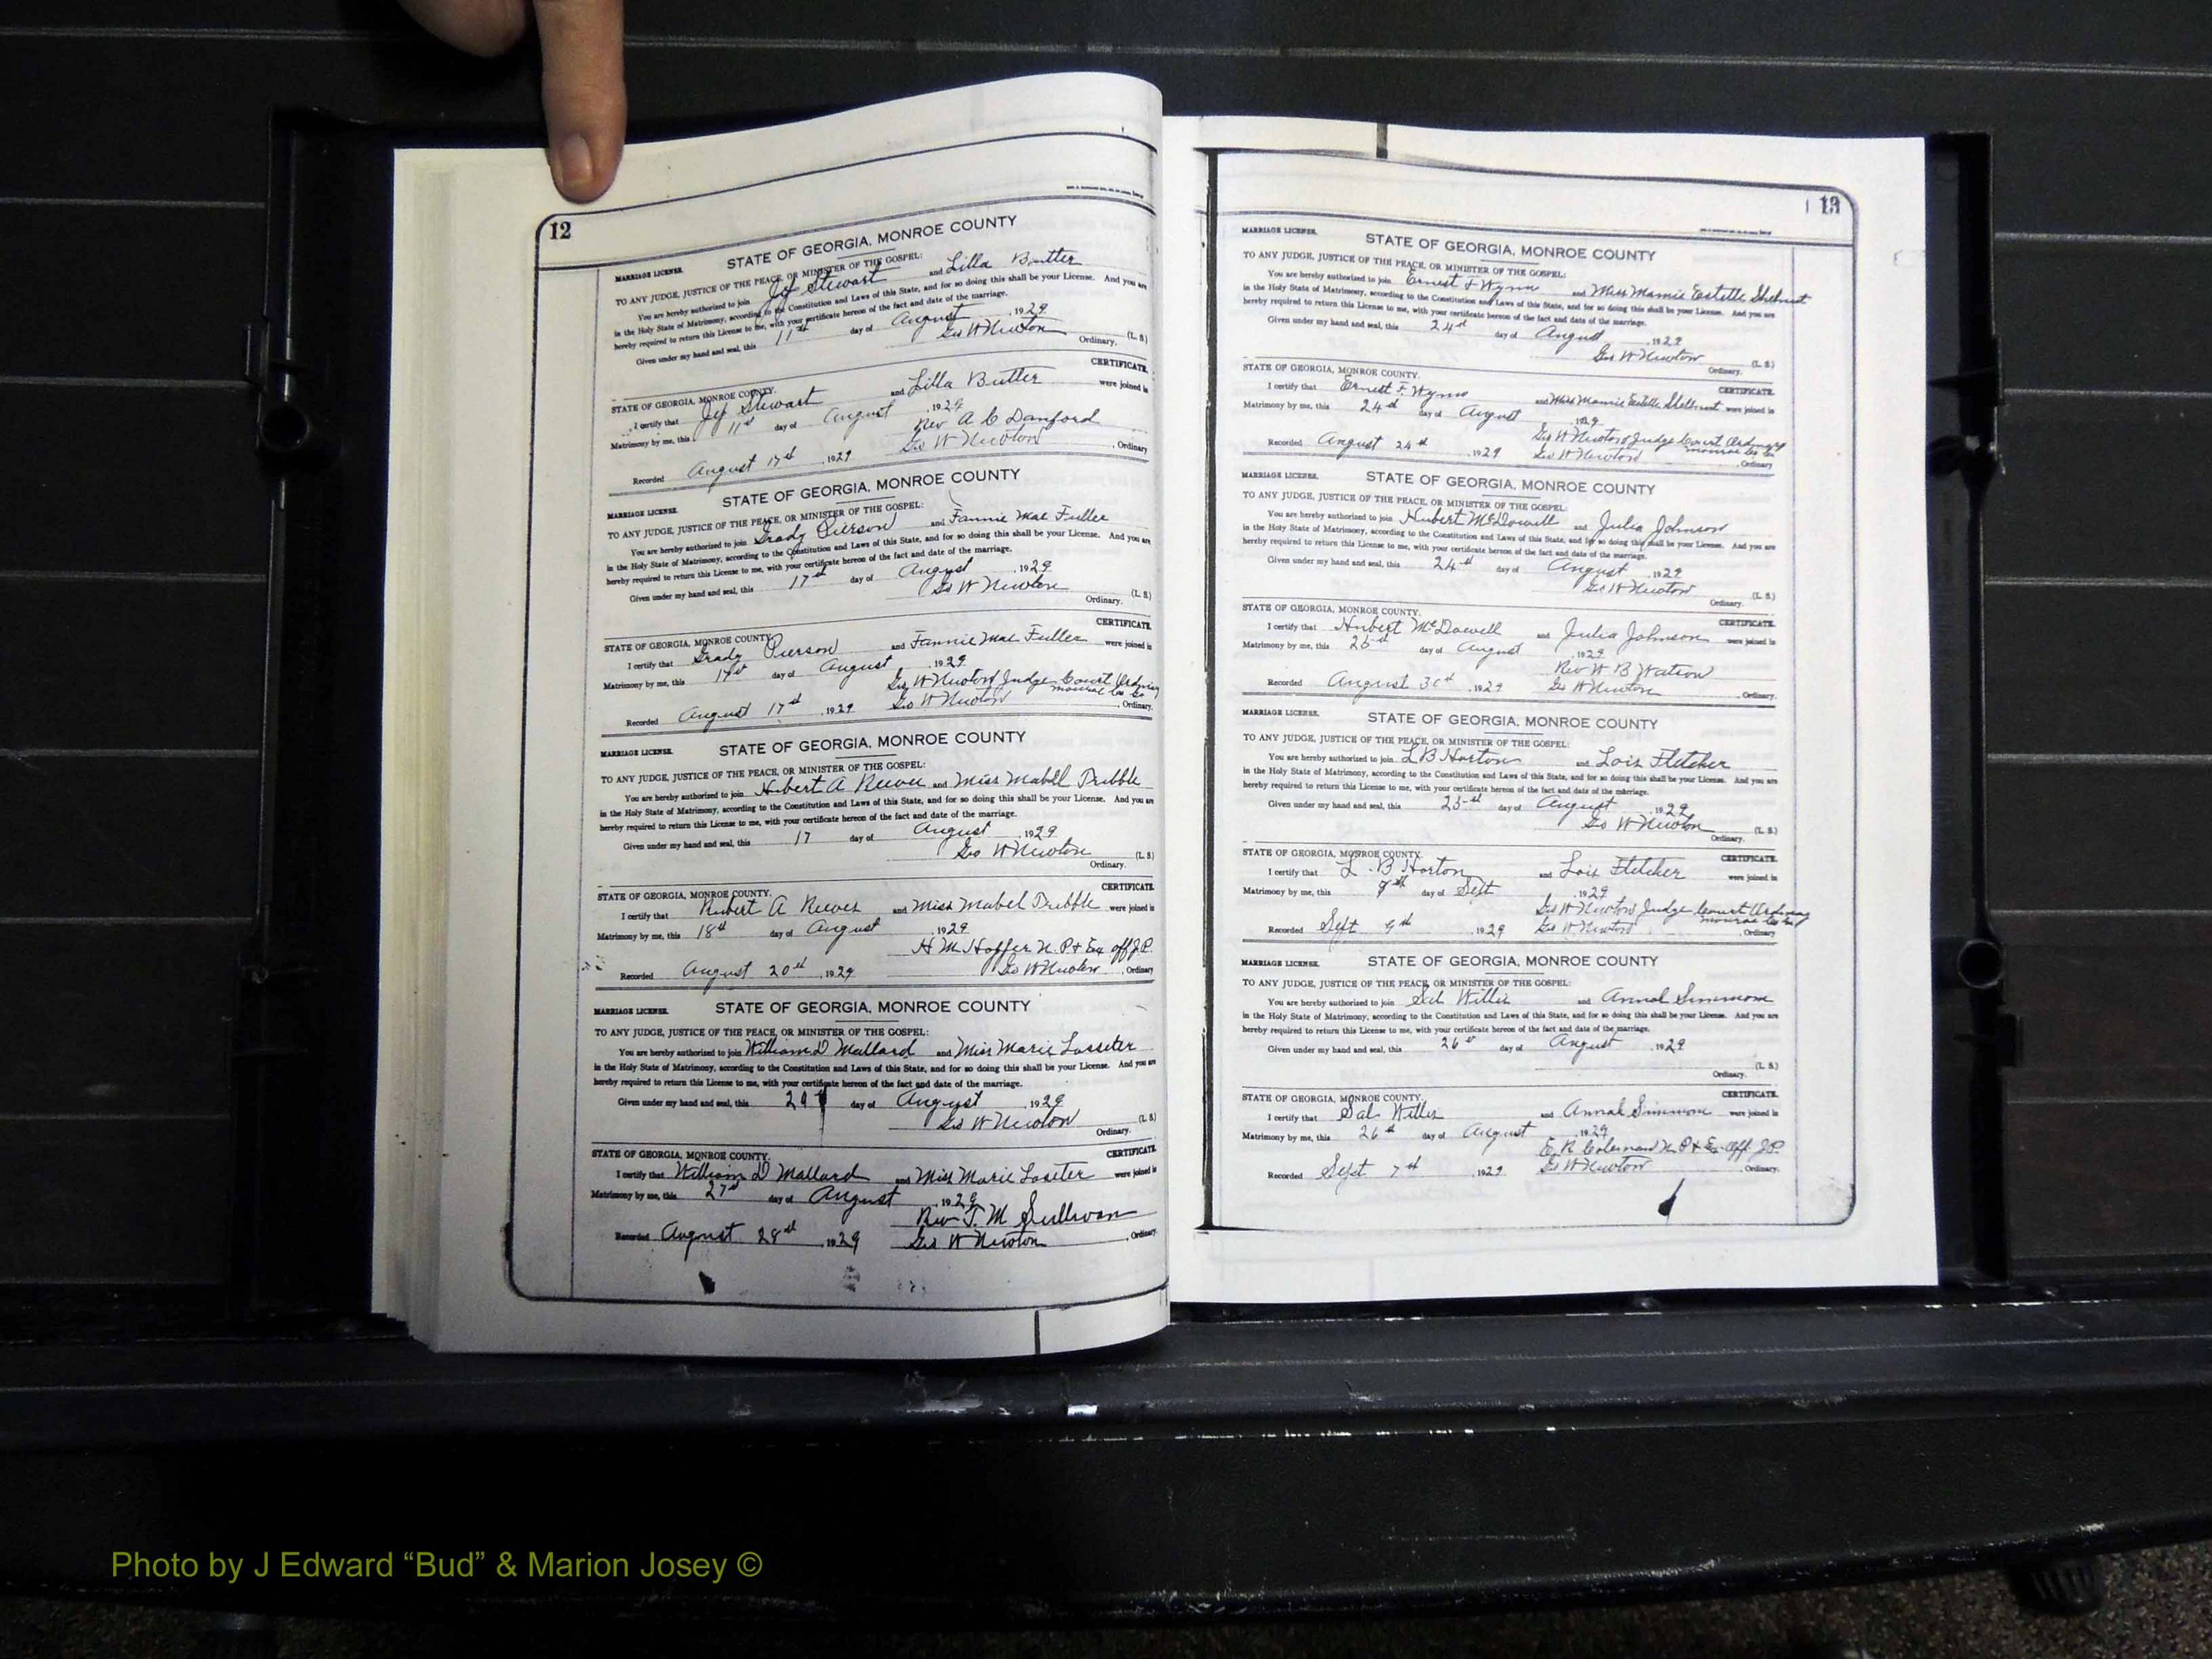 12
STATE OF GEORGIA, MONROE COUNTY
MARRIAGE LICENSE.
TO ANY JUDGE, JUSTICE OF THE PEACE, OR MINISTER OF THE GOSPEL:
You are hereby authorized to join Jef Stewart and Lilla Butler
in the Holy State of Matrimony, according to the Constitution and Laws of this State, and for so doing this shall be your License. And you are
hereby required to return this License to me, with your certificate hereon of the fact and date of the marriage.
Given under my hand and seal, this 11th day of August, 1929
Geo W Newton (L. S.)
Ordinary.
CERTIFICATE.
STATE OF GEORGIA, MONROE COUNTY.
I certify that Jef Stewart and Lilla Butler were joined in
Matrimony by me, this 11th day of August, 1929
Rev A C Danford
Recorded August 17th, 1929 Geo W Newton, Ordinary
STATE OF GEORGIA, MONROE COUNTY
MARRIAGE LICENSE.
TO ANY JUDGE, JUSTICE OF THE PEACE, OR MINISTER OF THE GOSPEL:
You are hereby authorized to join Grady Pierson and Fannie Mae Fuller
in the Holy State of Matrimony, according to the Constitution and Laws of this State, and for so doing this shall be your License. And you are
hereby required to return this License to me, with your certificate hereon of the fact and date of the marriage.
Given under my hand and seal, this 17th day of August, 1929
Geo W Newton (L. S.)
Ordinary.
CERTIFICATE.
STATE OF GEORGIA, MONROE COUNTY.
I certify that Grady Pierson and Fannie Mae Fuller were joined in
Matrimony by me, this 17th day of August, 1929
Geo W Newton Judge Court Ordinary
Monroe Co Ga
Recorded August 17th, 1929 Geo W Newton, Ordinary.
STATE OF GEORGIA, MONROE COUNTY
MARRIAGE LICENSE.
TO ANY JUDGE, JUSTICE OF THE PEACE, OR MINISTER OF THE GOSPEL:
You are hereby authorized to join Hubert A Reeves and Miss Mabell Tribble
in the Holy State of Matrimony, according to the Constitution and Laws of this State, and for so doing this shall be your License. And you are
hereby required to return this License to me, with your certificate hereon of the fact and date of the marriage.
Given under my hand and seal, this 17 day of August, 1929
Geo W Newton (L. S.)
Ordinary.
CERTIFICATE.
STATE OF GEORGIA, MONROE COUNTY.
I certify that Hubert A Reeves and Miss Mabel Tribble were joined in
Matrimony by me, this 18th day of August, 1929
H M Hoffer N. P & Ex off J.P.
Recorded August 20th, 1929 Geo W Newton, Ordinary
STATE OF GEORGIA, MONROE COUNTY
MARRIAGE LICENSE.
TO ANY JUDGE, JUSTICE OF THE PEACE, OR MINISTER OF THE GOSPEL:
You are hereby authorized to join William D Mallard and Miss Marie Lasseter
in the Holy State of Matrimony, according to the Constitution and Laws of this State, and for so doing this shall be your License. And you are
hereby required to return this License to me, with your certificate hereon of the fact and date of the marriage.
Given under my hand and seal, this day of August, 1929
Geo W Newton (L. S.)
Ordinary.
CERTIFICATE.
STATE OF GEORGIA, MONROE COUNTY.
I certify that William D Mallard and Miss Marie Lasseter were joined in
Matrimony by me, this 27th day of August, 1929
Rev T. M Sullivan
Recorded August 28th, 1929 Geo W Newton, Ordinary.
13
MARRIAGE LICENSE.
STATE OF GEORGIA, MONROE COUNTY
TO ANY JUDGE, JUSTICE OF THE PEACE, OR MINISTER OF THE GOSPEL:
You are hereby authorized to join Ernest F Wynn and Miss Mamie Estelle
in the Holy State of Matrimony, according to the Constitution and Laws of this State, and for so doing this shall be your License. And you are
hereby required to return this License to me, with your certificate hereon of the fact and date of the marriage.
Given under my hand and seal, this 24th day of August, 1929
Geo W Newton (L. S.)
Ordinary.
STATE OF GEORGIA, MONROE COUNTY.
CERTIFICATE.
I certify that Ernest F. Wynn and Miss Mamie Estelle were joined in
Matrimony by me, this 24th day of August, 1929
Geo W Newton Judge Court Ordinary
Monroe Co Ga
Recorded August 24th, 1929 Geo W Newton, Ordinary
MARRIAGE LICENSE.
STATE OF GEORGIA, MONROE COUNTY
TO ANY JUDGE, JUSTICE OF THE PEACE, OR MINISTER OF THE GOSPEL:
You are hereby authorized to join Hubert McDowell and Julia Johnson
in the Holy State of Matrimony, according to the Constitution and Laws of this State, and for so doing this shall be your License. And you are
hereby required to return this License to me, with your certificate hereon of the fact and date of the marriage.
Given under my hand and seal, this 24th day of August, 1929
Geo W Newton (L. S.)
Ordinary.
STATE OF GEORGIA, MONROE COUNTY.
CERTIFICATE.
I certify that Hubert McDowell and Julia Johnson were joined in
Matrimony by me, this 25th day of August, 1929
Rev W B Watson
Recorded August, 1929 Geo W Newton, Ordinary.
MARRIAGE LICENSE.
STATE OF GEORGIA, MONROE COUNTY
TO ANY JUDGE, JUSTICE OF THE PEACE, OR MINISTER OF THE GOSPEL:
You are hereby authorized to join L B Horton and Lois Fletcher
in the Holy State of Matrimony, according to the Constitution and Laws of this State, and for so doing this shall be your License. And you are
hereby required to return this License to me, with your certificate hereon of the fact and date of the marriage.
Given under my hand and seal, this 25th day of August, 1929
Geo W Newton (L. S.)
Ordinary.
STATE OF GEORGIA, MONROE COUNTY.
CERTIFICATE.
I certify that L. B Horton and Lois Fletcher were joined in
Matrimony by me, this day of Sept, 1929
Geo W Newton Judge Court Ordinary
Monroe Co Ga
Recorded Sept 9th, 1929 Geo W Newton, Ordinary
MARRIAGE LICENSE.
STATE OF GEORGIA, MONROE COUNTY
TO ANY JUDGE, JUSTICE OF THE PEACE, OR MINISTER OF THE GOSPEL:
You are hereby authorized to join Sal Willis and Annal Simmons
in the Holy State of Matrimony, according to the Constitution and Laws of this State, and for so doing this shall be your License. And you are
hereby required to return this License to me, with your certificate hereon of the fact and date of the marriage.
Given under my hand and seal, this 26th day of August, 1929
(L. S.)
Ordinary.
STATE OF GEORGIA, MONROE COUNTY.
CERTIFICATE.
I certify that Sal Willis and Annal Simmons were joined in
Matrimony by me, this 26th day of August, 1929
E. R Coleman N. P & Ex-off J.P.
Recorded Sept 7th, 1929 Geo W Newton, Ordinary.
Photo by J Edward “Bud” & Marion Josey ©